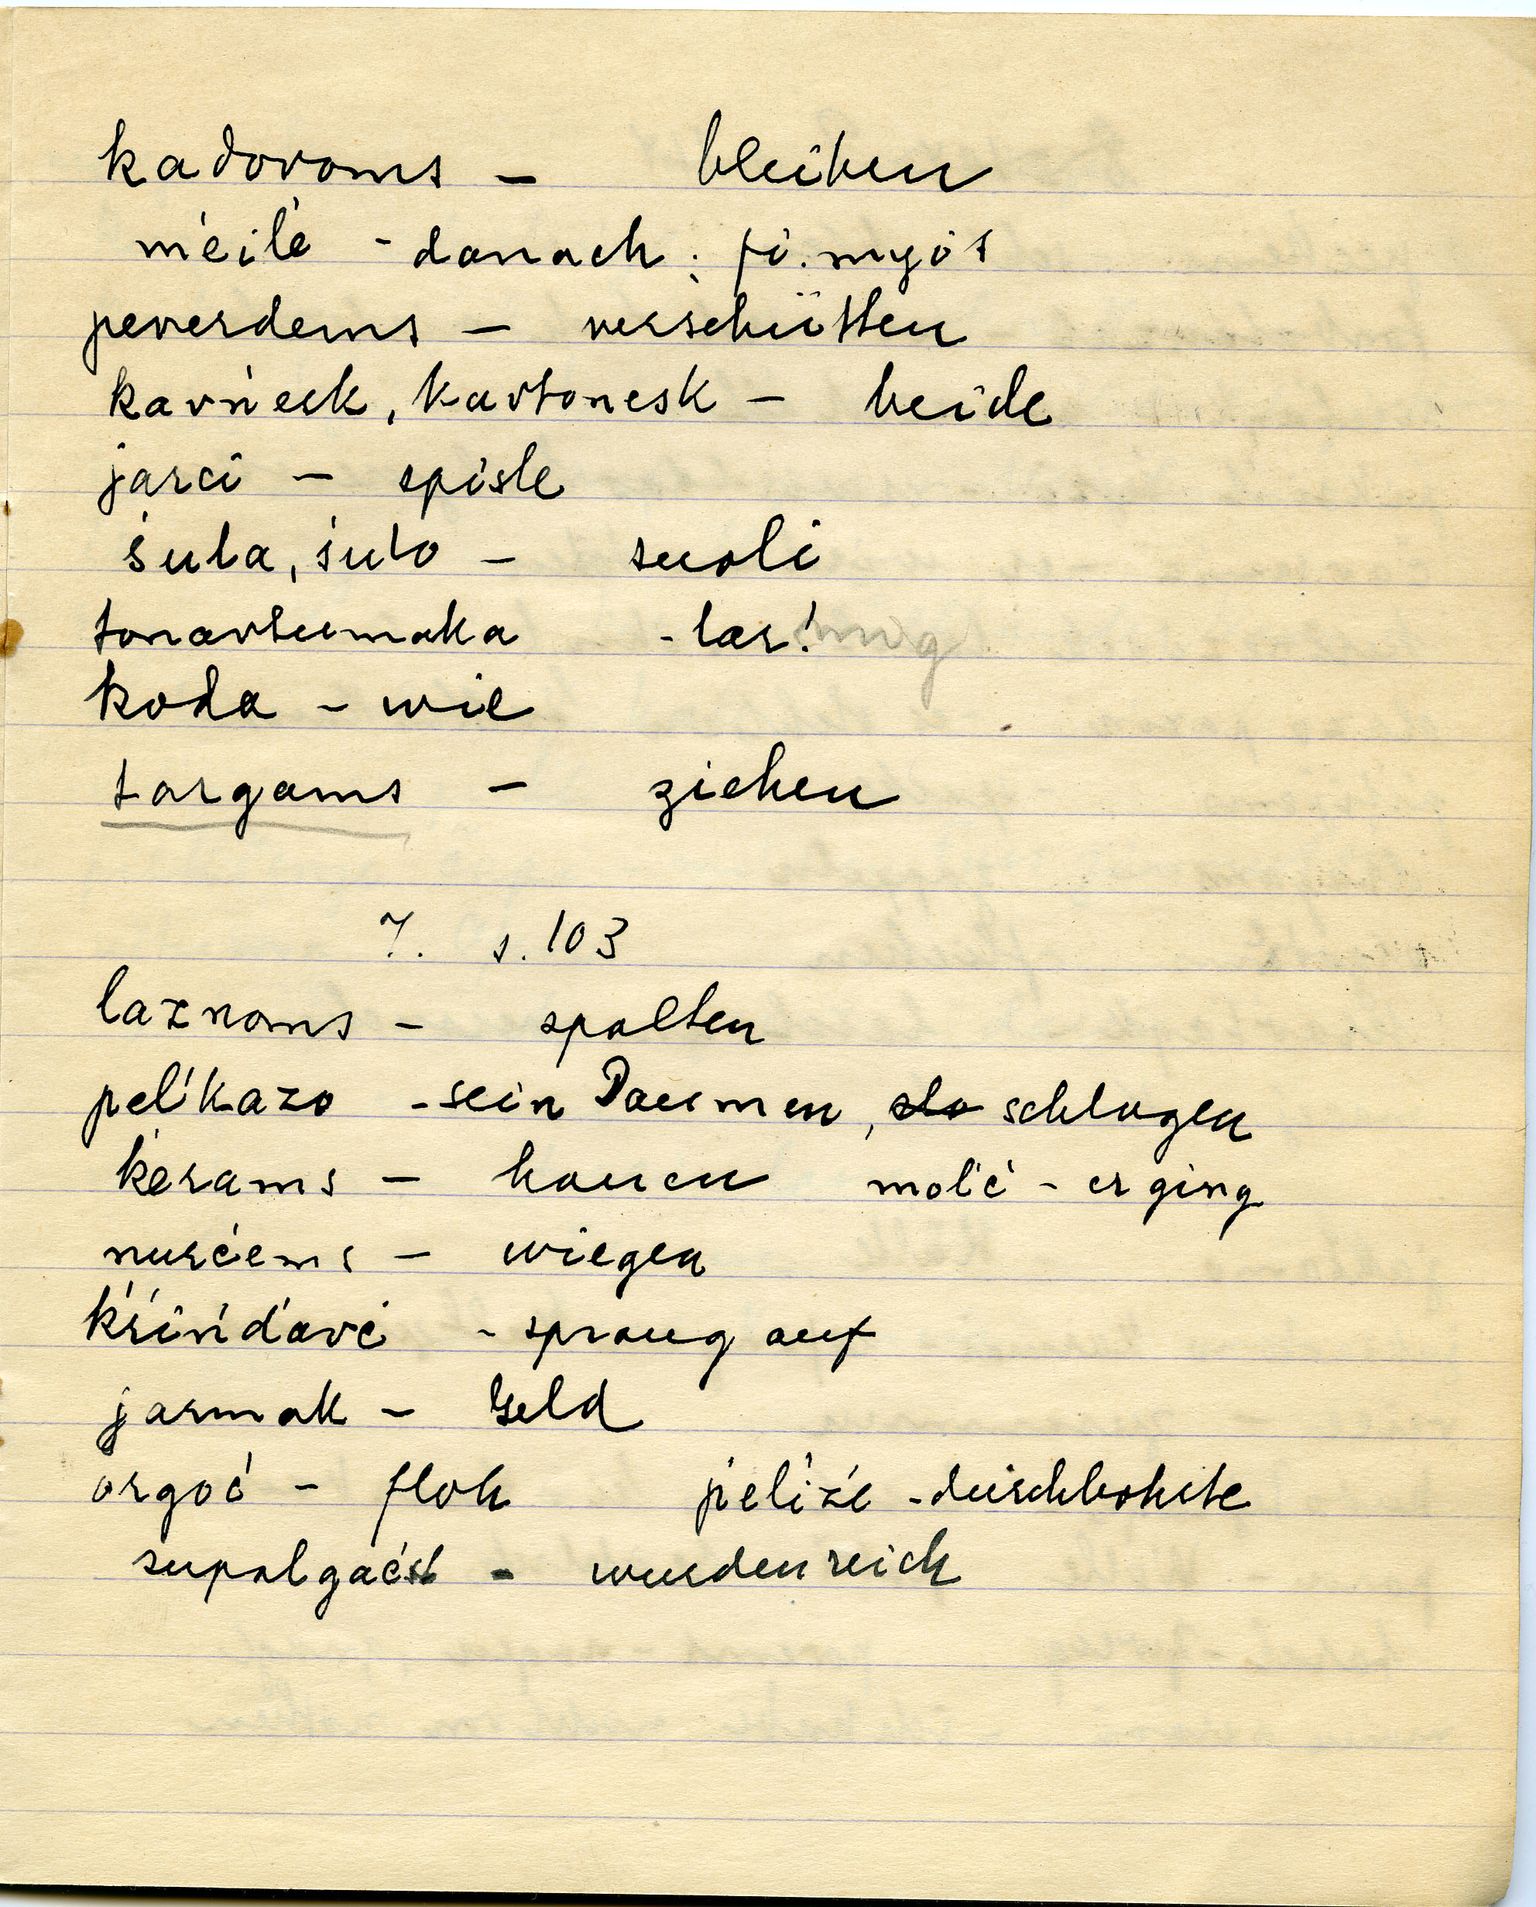 kadovoms – bleiben
ḿeiĺe - danach; fi. myös
peverdems – verschütten
kavńesk, kavtonesk – beide
jarci – spiste
śula, śulo – suoli
tonavtumaka - lær! mig
koda – wie
targams – ziehen
7. s. 103
laznoms – spalten
peĺkazo - sein Daumen, slo schlugen
ḱerams – hauen molć - er ging
nurćems – wiegen
ḱŕińd́avć - sprang auf
jarmak – Geld
orgoć – Floh ṕeĺiźe - durchbohrte
supalgaćt – wurden reich